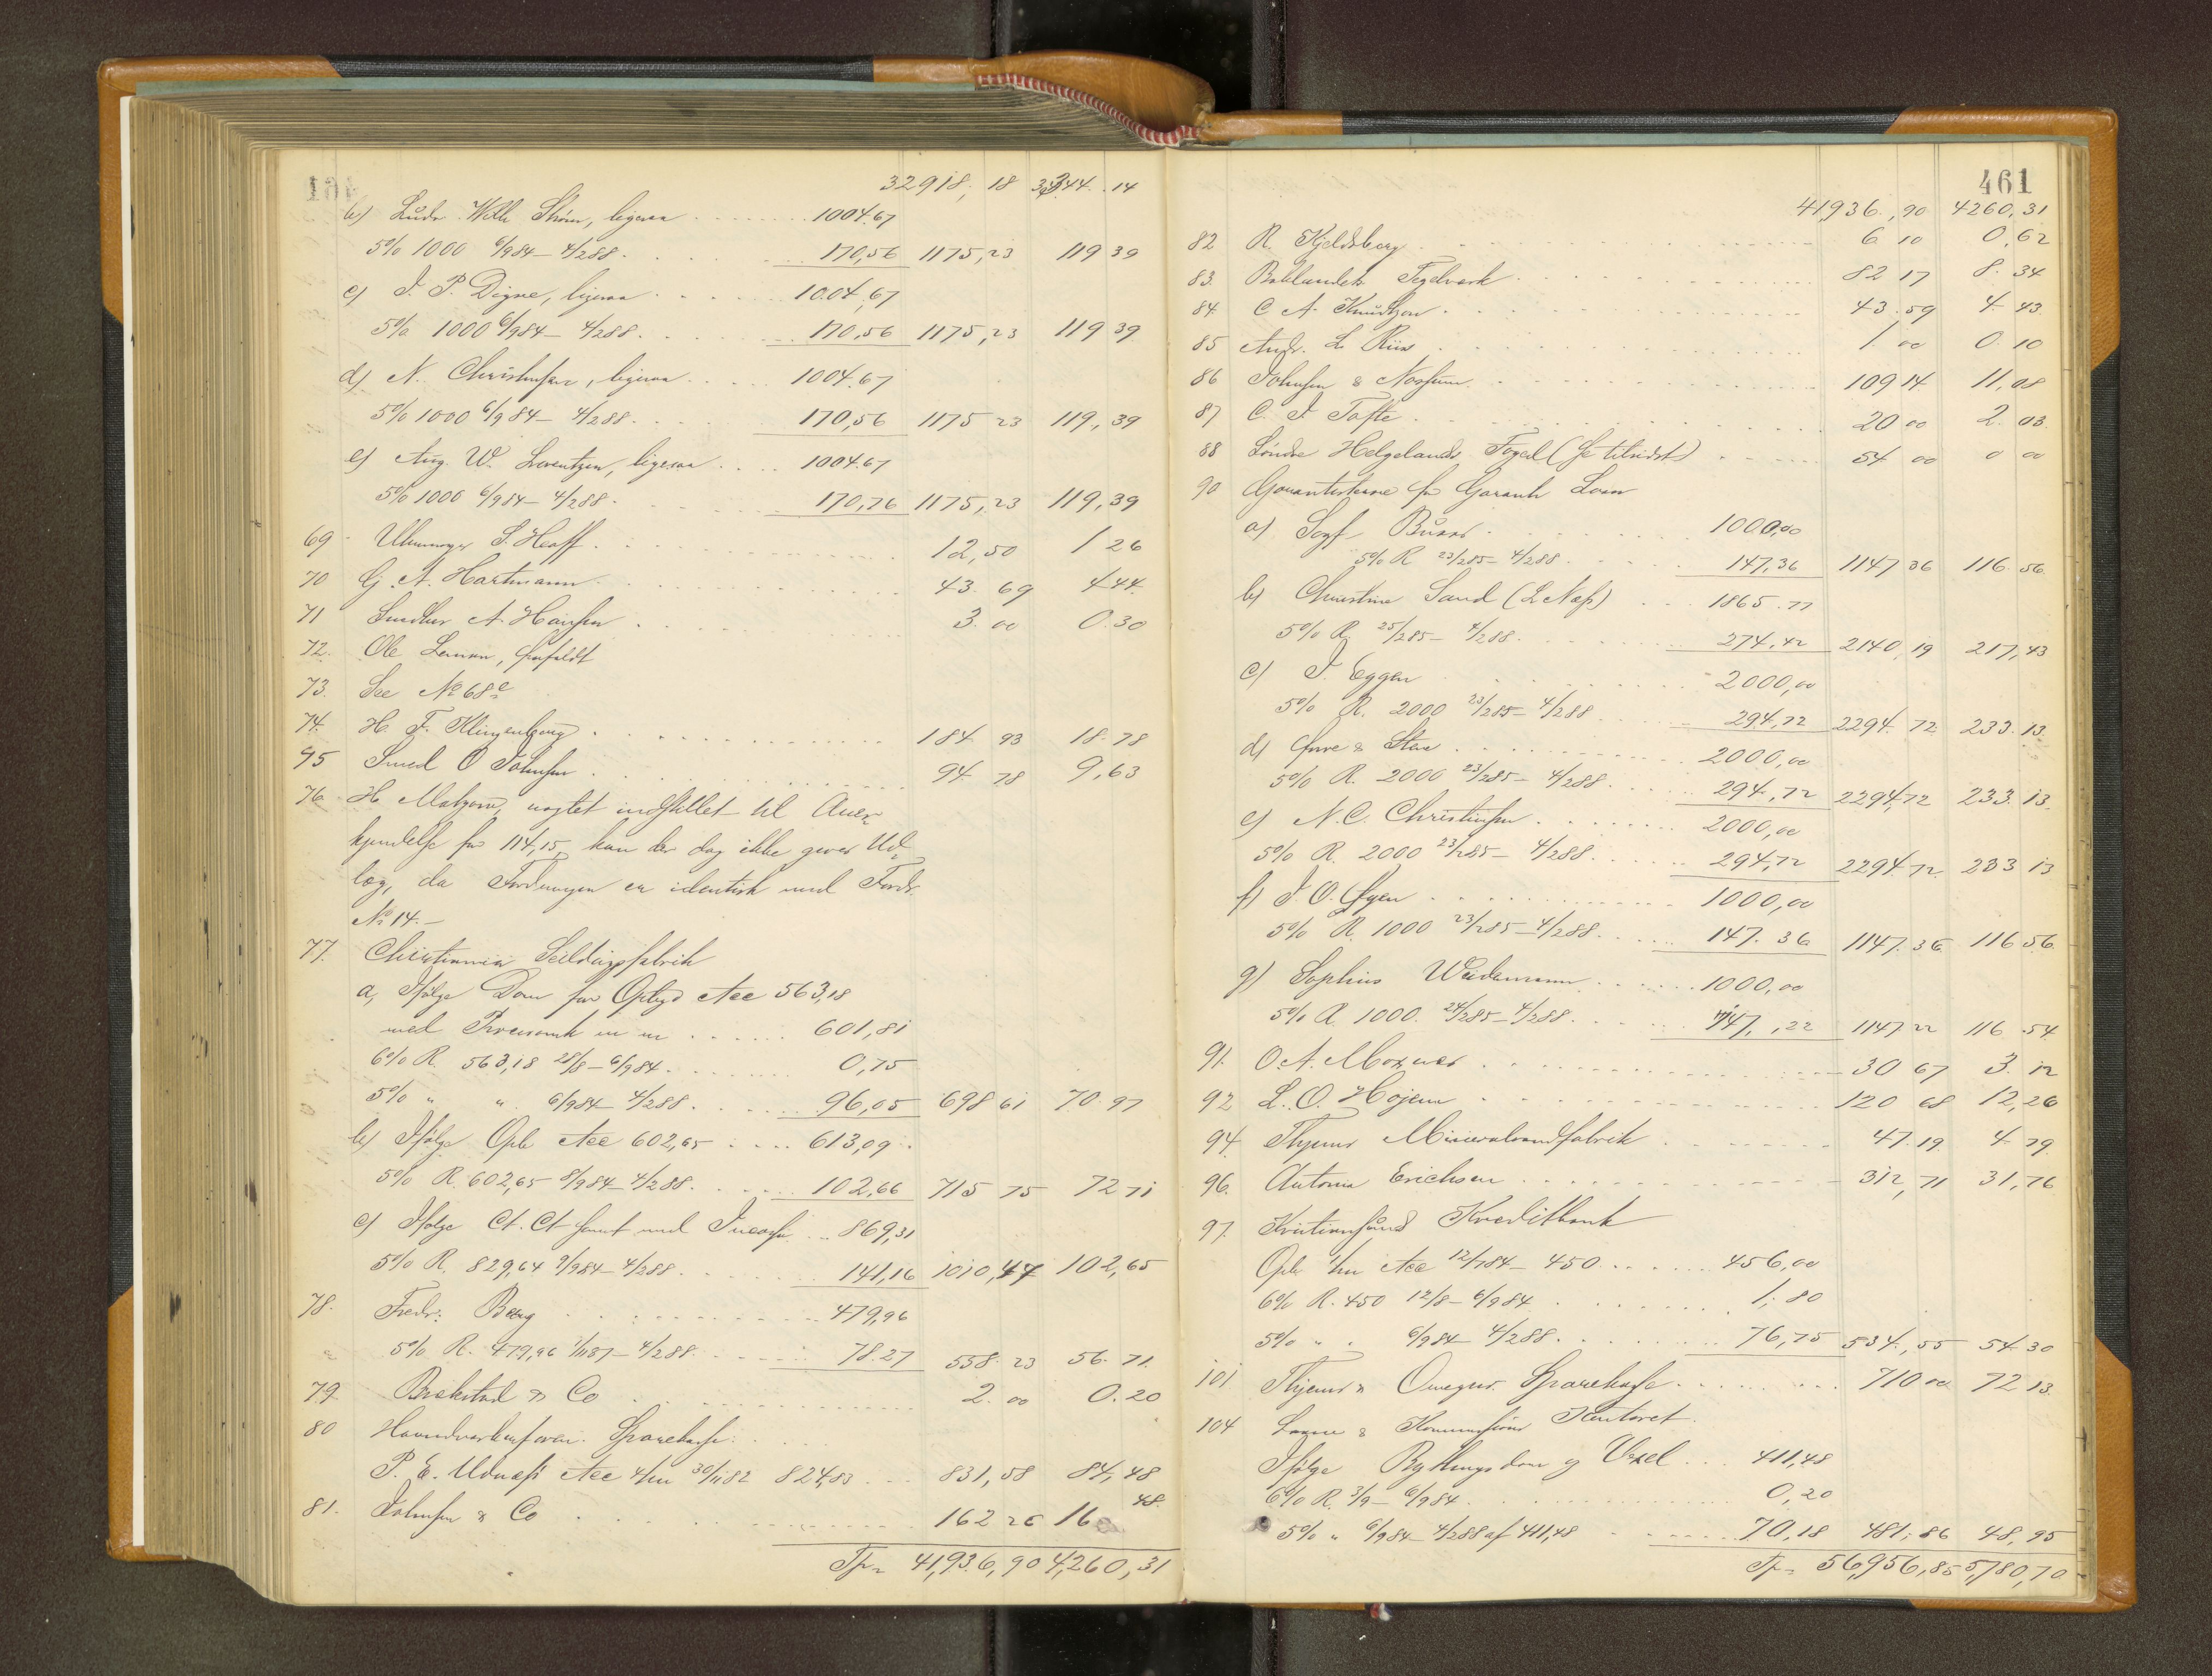 32918, 18 3344. 14
b) Ludv. Wilh Strøm, ligesaa 1004.67
5% 1000 6/9 84 – 4/2 88. 170,56 1175,23 119 39
c) J. P. Digre, ligesaa 1004,67
5% 1000 6/9 84 – 4/2 88. 170,56 1175,23 119 39
d) N. Christensen, ligesaa 1004.67
5% 1000 6/9 84 – 4/2 88. 170,56 1175 23 119,39
e) Aug. W. Lorentzen, ligesaa 1004.67
5% 1000 6/9 84 – 4/2 88. 170,76 1175,23 119,39
69 Uhrmager S. Hoff. 12,50 1 26
70 G. A. Hartmann 43. 69 4 44.
71 Snedker A. Hansen 3. 00 0.30
72. Ole Lernæs, frafaldt
73. See No 68 e
74. H. F. Klingenberg 184 93 18.78
95 Smed O Johnsen 94 78 9,63
76. H. Matzow, uagtet indstillet til Aner-
kjendelse for 114,15, kan der dog ikke gives Ud-
læg, da Fordringen er identisk med Fordr.
No 14. –
77. Christiania Seildugsfabrik
a, Ifølge Dom for Opbyd Acc 563,18
med Procesomk m m 601,81
6% R. 563,18 28/8 – 6/9 84. 0,75
5% " " 6/9 84 – 4/2 88. 96,05 698 61 70.97
b) Ifølge Opb Acc 602,65 613,09
5% R. 602,65 8/9 84 – 4/2 88. 102,66 715 75 72 71
c) Ifølge Ct. Ct samt med Incasso 869,31
5% R. 829,64 9/9 84 – 4/2 88. 141,16 1010,47 102,65
78. Fredr: Berg 479,96
5% R. 479,96 – 4/2 88. 78.27 558. 23 56. 71.
79. Brekstad & Co 2. 00 0.20
80 Haandverkerforen. Sparekasse.
P. E. Udnæs Acc 30/11 82 824,83 831,58 84,48
81. Johnsen & Co 162 26 16 48.
Tp = 41,936,90 4,260,31
461
41,936.,90 4260,31
82 R. Kjeldsberg 6 10 0,62
83. Baklandets Teglværk 82 17 8. 34
84 C A. Knudtzon 43.59 4 43.
85 Andr. L Riis 1 00 0. 10
86 Johnsen & Nossum 109 14. 11,08
87 C. J. Tofte 20 00 2. 03.
88 Søndre Helgelands Foged (Se tilsidst) 54 00 0 00
90 Garantisterne for Garanti Laan
a) Sogf. Buaas 1000,00
5% R 23/2 85 – 4/2 88 147,36 1147 36 116. 56.
b) Christine Sand (L Næss) 1865.77
5% R. 25/2 85 – 4/2 88. 274,42 2140,19 217,43
c) J. Eggen 2000,00
5% R. 2000 23/2 85 – 4/2 88 294,72 2294.72 233.13.
d) Huve & Stav 2000,00
5% R. 2000 23/2 85 – 4/2 88. 294,72 2294,72 233.13.
e) N.C. Christensen 2000,00
5% R. 2000 23/2 85 – 4/2 88. 294,72 2294.72. 233 13
f) J. O. Øyen 1000,00
5% R. 1000 23/2 85 – 4/2 88. 147.36 1147.36 116 56.
g) Sophus Weidemann 1000,00
5% R. 1000. 24/2 85 – 4/2 88. 147,22 1147 22 116.54.
91. O. A. Moxnes 30 67 3. 12
92 L. O. Hojem 120 68 12,26
94. Thjems Mineralvandfabrik 47.19. 4 79.
96. Antonie Erichsen 312,71 31,76
97. Kristiansunds Kreditbank
Opb Acc 12/7 84 – 450 456,00
6% R. 450 12/8 – 6/9 84 1.80
5% " " 6/9 84 – 4/2 88. 76,75 534,55 54.30
101 Thjems & Omegns Sparekasse 710 00 72 13.
104 Laane & Kommissions Kontoret
Ifølge Bythingsdom og Vexel 411,48
6% R. 3/9 – 6/9 84 0,20
5% " 6/9 84 – 4/2 88 af 411,48 70,18 481.86 48,95
Tp = 56,956,85 5,780,70